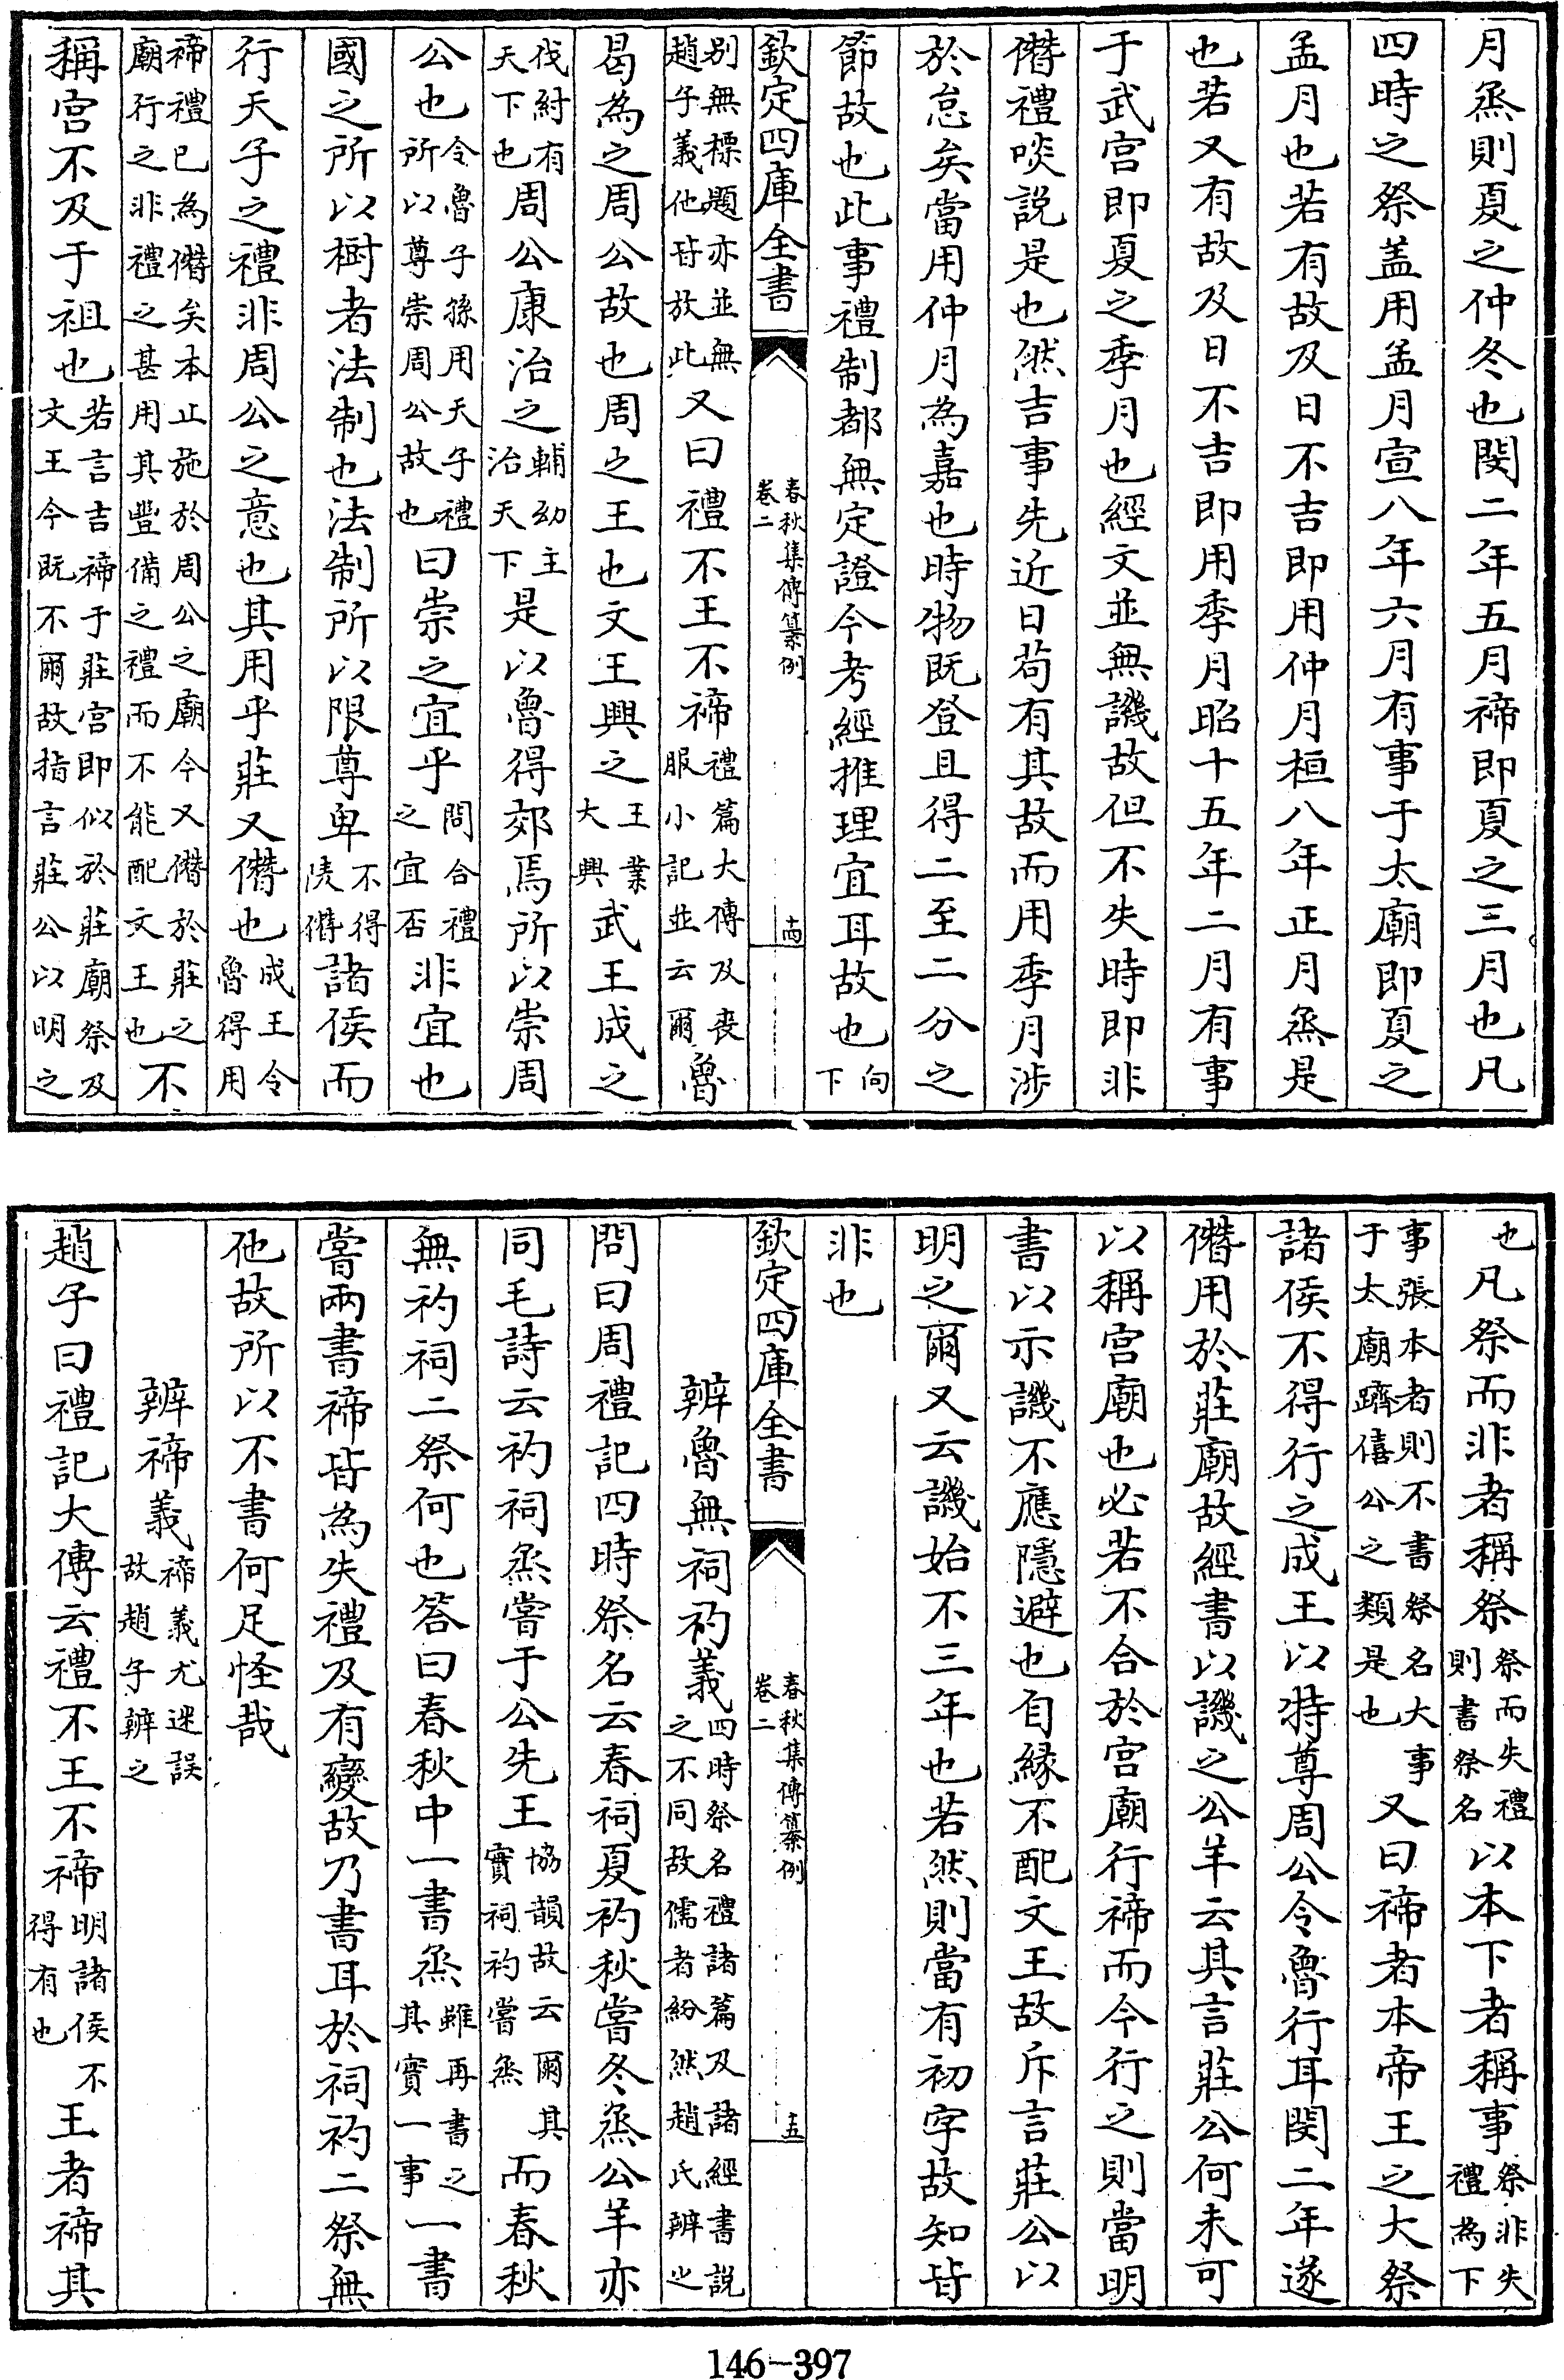 月烝則夏之仲冬也閔二年五月禘即夏之三月也凡
四時之祭盖用孟月宣八年六月有事于太廟即夏之
孟月也若有故及日不吉即用仲月桓八年正月烝是
也若又有故及日不吉即用季月昭十五年二月有事
于武宫即夏之季月也經文並無譏故但不失時即非
僭禮啖説是也然吉事先近日茍有其故而用季月涉
於怠矣當用仲月為嘉也時物既登且得二至二分之
節故也此事禮制都無定證今考經推理宜耳故也向下
欽定四庫全書
春秋集傳纂例
卷二
十四
别無標題亦並無趙子義他皆放此又曰禮不王不禘禮篇大傳及喪服小記並云爾魯
曷為之周公故也周之王也文王興之王業大興武王成之
伐紂有天下也周公康治之輔幼主治天下是以魯得郊焉所以崇周
公也令魯子孫用天子禮所以尊崇周公故也曰崇之宜乎問合禮之宜否非宜也
國之所以樹者法制也法制所以限尊卑不得陵僭諸侯而
行天子之禮非周公之意也其用乎莊又僭也成王令魯得用
禘禮已為僭矣本止施於周公之廟今又僭於莊之廟行之非禮之甚用其豐備之禮而不能配文王也不
稱宫不及于祖也若言吉禘于莊宫即似於莊廟祭及文王今既不爾故指言莊公以明之
也凡祭而非者稱祭祭而失禮則書祭名以本下者稱事祭非失禮為下
事張本者則不書祭名大事于太廟躋僖公之類是也又曰禘者本帝王之大祭
諸侯不得行之成王以特尊周公令魯行耳閔二年遂
僭用於莊廟故經書以譏之公羊云其言莊公何未可
以稱宫廟也必若不合於宫廟行禘而今行之則當明
書以示譏不應隱避也自緣不配文王故斥言莊公以
明之爾又云譏始不三年也若然則當有初字故知皆
非也
欽定四庫全書
春秋集傳纂例
卷二
十五
辨魯無祠礿義四時祭名禮諸篇及諸經書説之不同故儒者紛然趙氏辨之
問曰周禮記四時祭名云春祠夏礿秋嘗冬烝公羊亦
同毛詩云礿祠烝嘗于公先王協韻故云爾其實祠礿嘗烝而春秋
無礿祠二祭何也答曰春秋中一書烝雖再書之其實一事一書
嘗兩書禘皆為失禮及有變故乃書耳於祠礿二祭無
他故所以不書何足怪哉
辨禘義禘義尤迷誤故趙子辨之
趙子曰禮記大傳云禮不王不禘明諸侯不得有也王者禘其
146-397